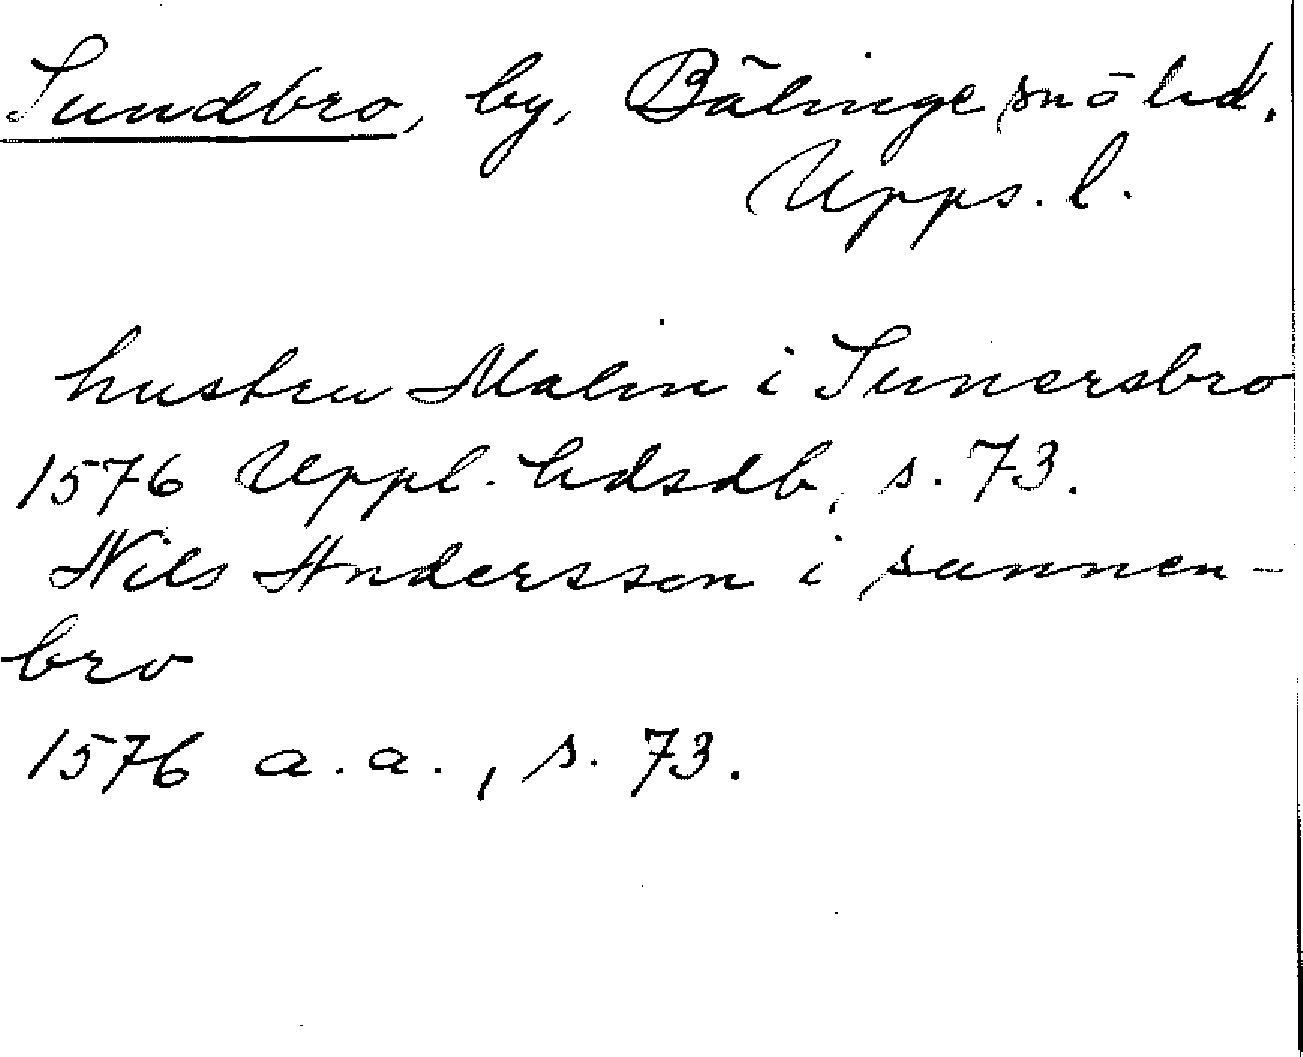 Sundbro, by, Bälinge sn ö hd.
Upps. l.
hustru Malin i Sunersbro
1576 Uppl. hdsdb, s. 73.
Nils Andersson i sunnen-
bro
1576 a.a., s. 73.